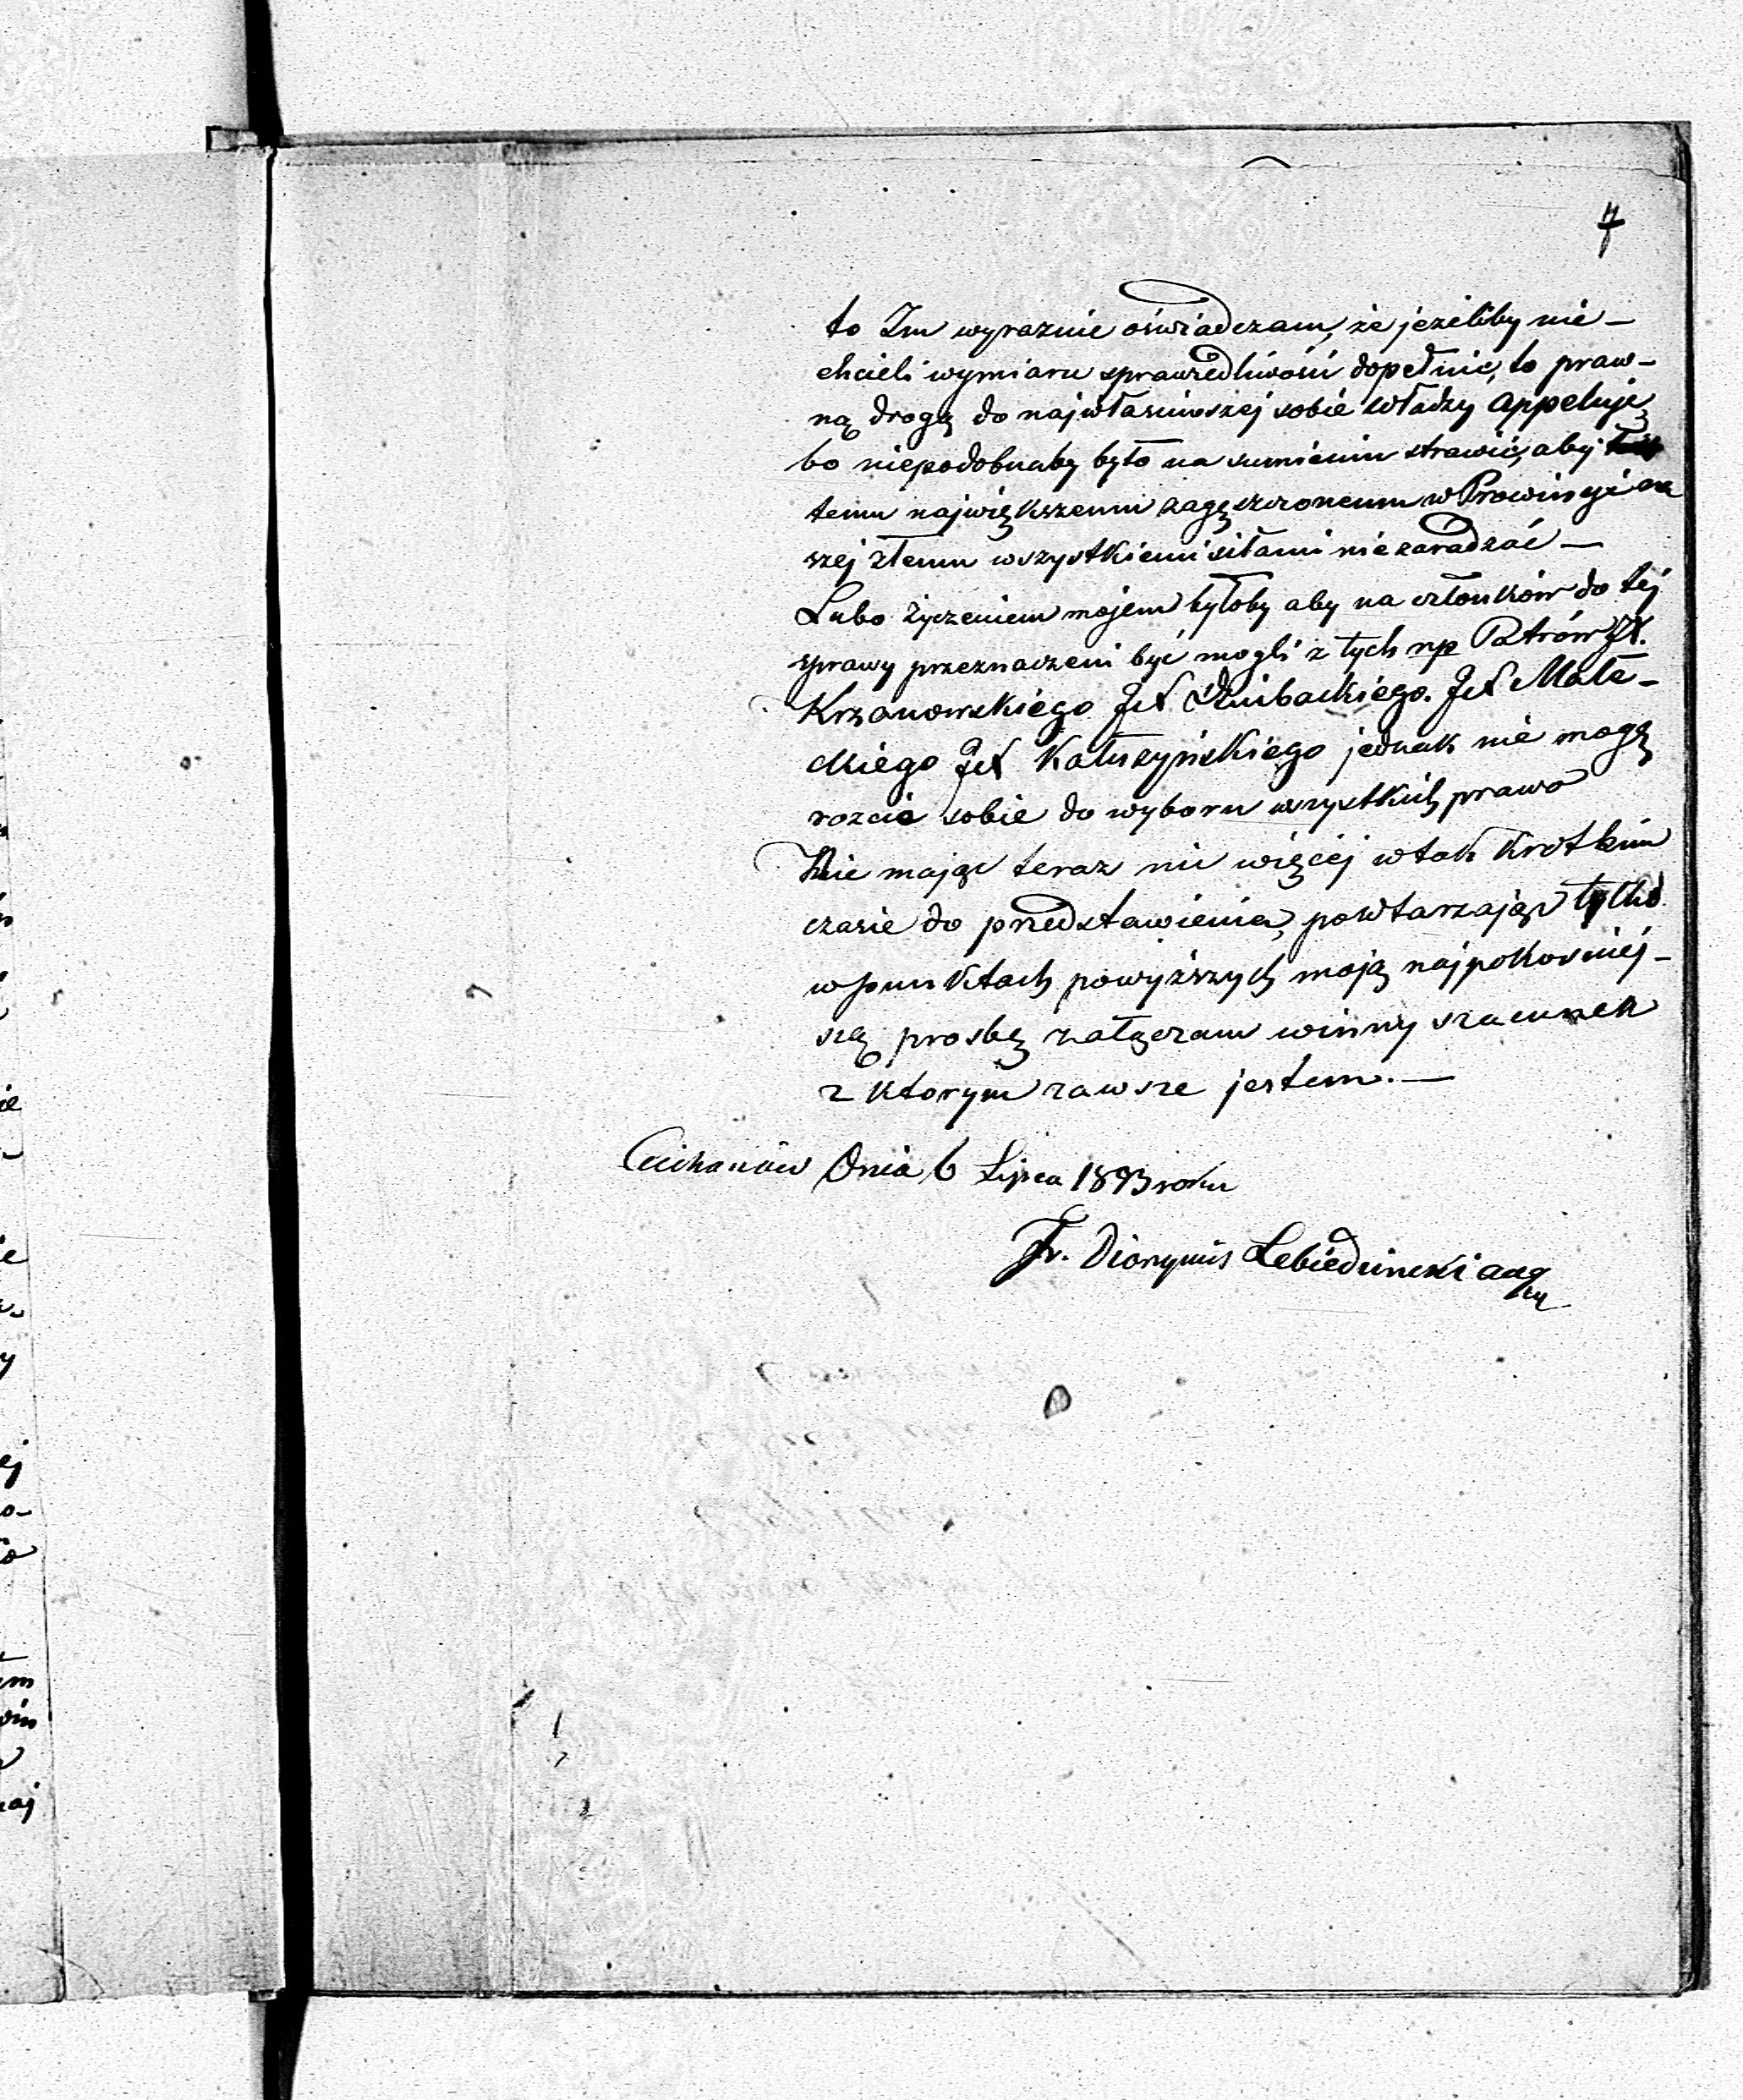 7
to Im wyraznie oświadczam, że jezeliby nie-
chcieli wymiaru sprawiedliwości dopełnić, to praw-
ną drogą do najwłasciwszej sobie władzy appeluję
bo niepodobnaby było na sumieniu strawić, aby
temu największemu zagęszczonemu w Prowincyi na
szej złemu wszystkiemi siłami nie zaradzać —
Lubo życzeniem mojem byłoby aby na członków do tej
sprawy przeznaczeni być mogli z tych np Patrów JX.
Krzanowskiego JX JX Mate-
ckiego JX Kałuszyńskiego jednak nie mogę
roscić sobie do wyboru wszystkich prawo
Nie mając teraz nic więcej w tak krotkim
czasie do przedstawienia, powtarzając tylko
w punktach powyższych moją najpokorniej-
szą prosbę załączam winny szacunek
z ktorym zawsze jestem. —
Ciechanów Dnia 6 Lipca 1893 roku
Fr. Dionymis Lebiedzinski